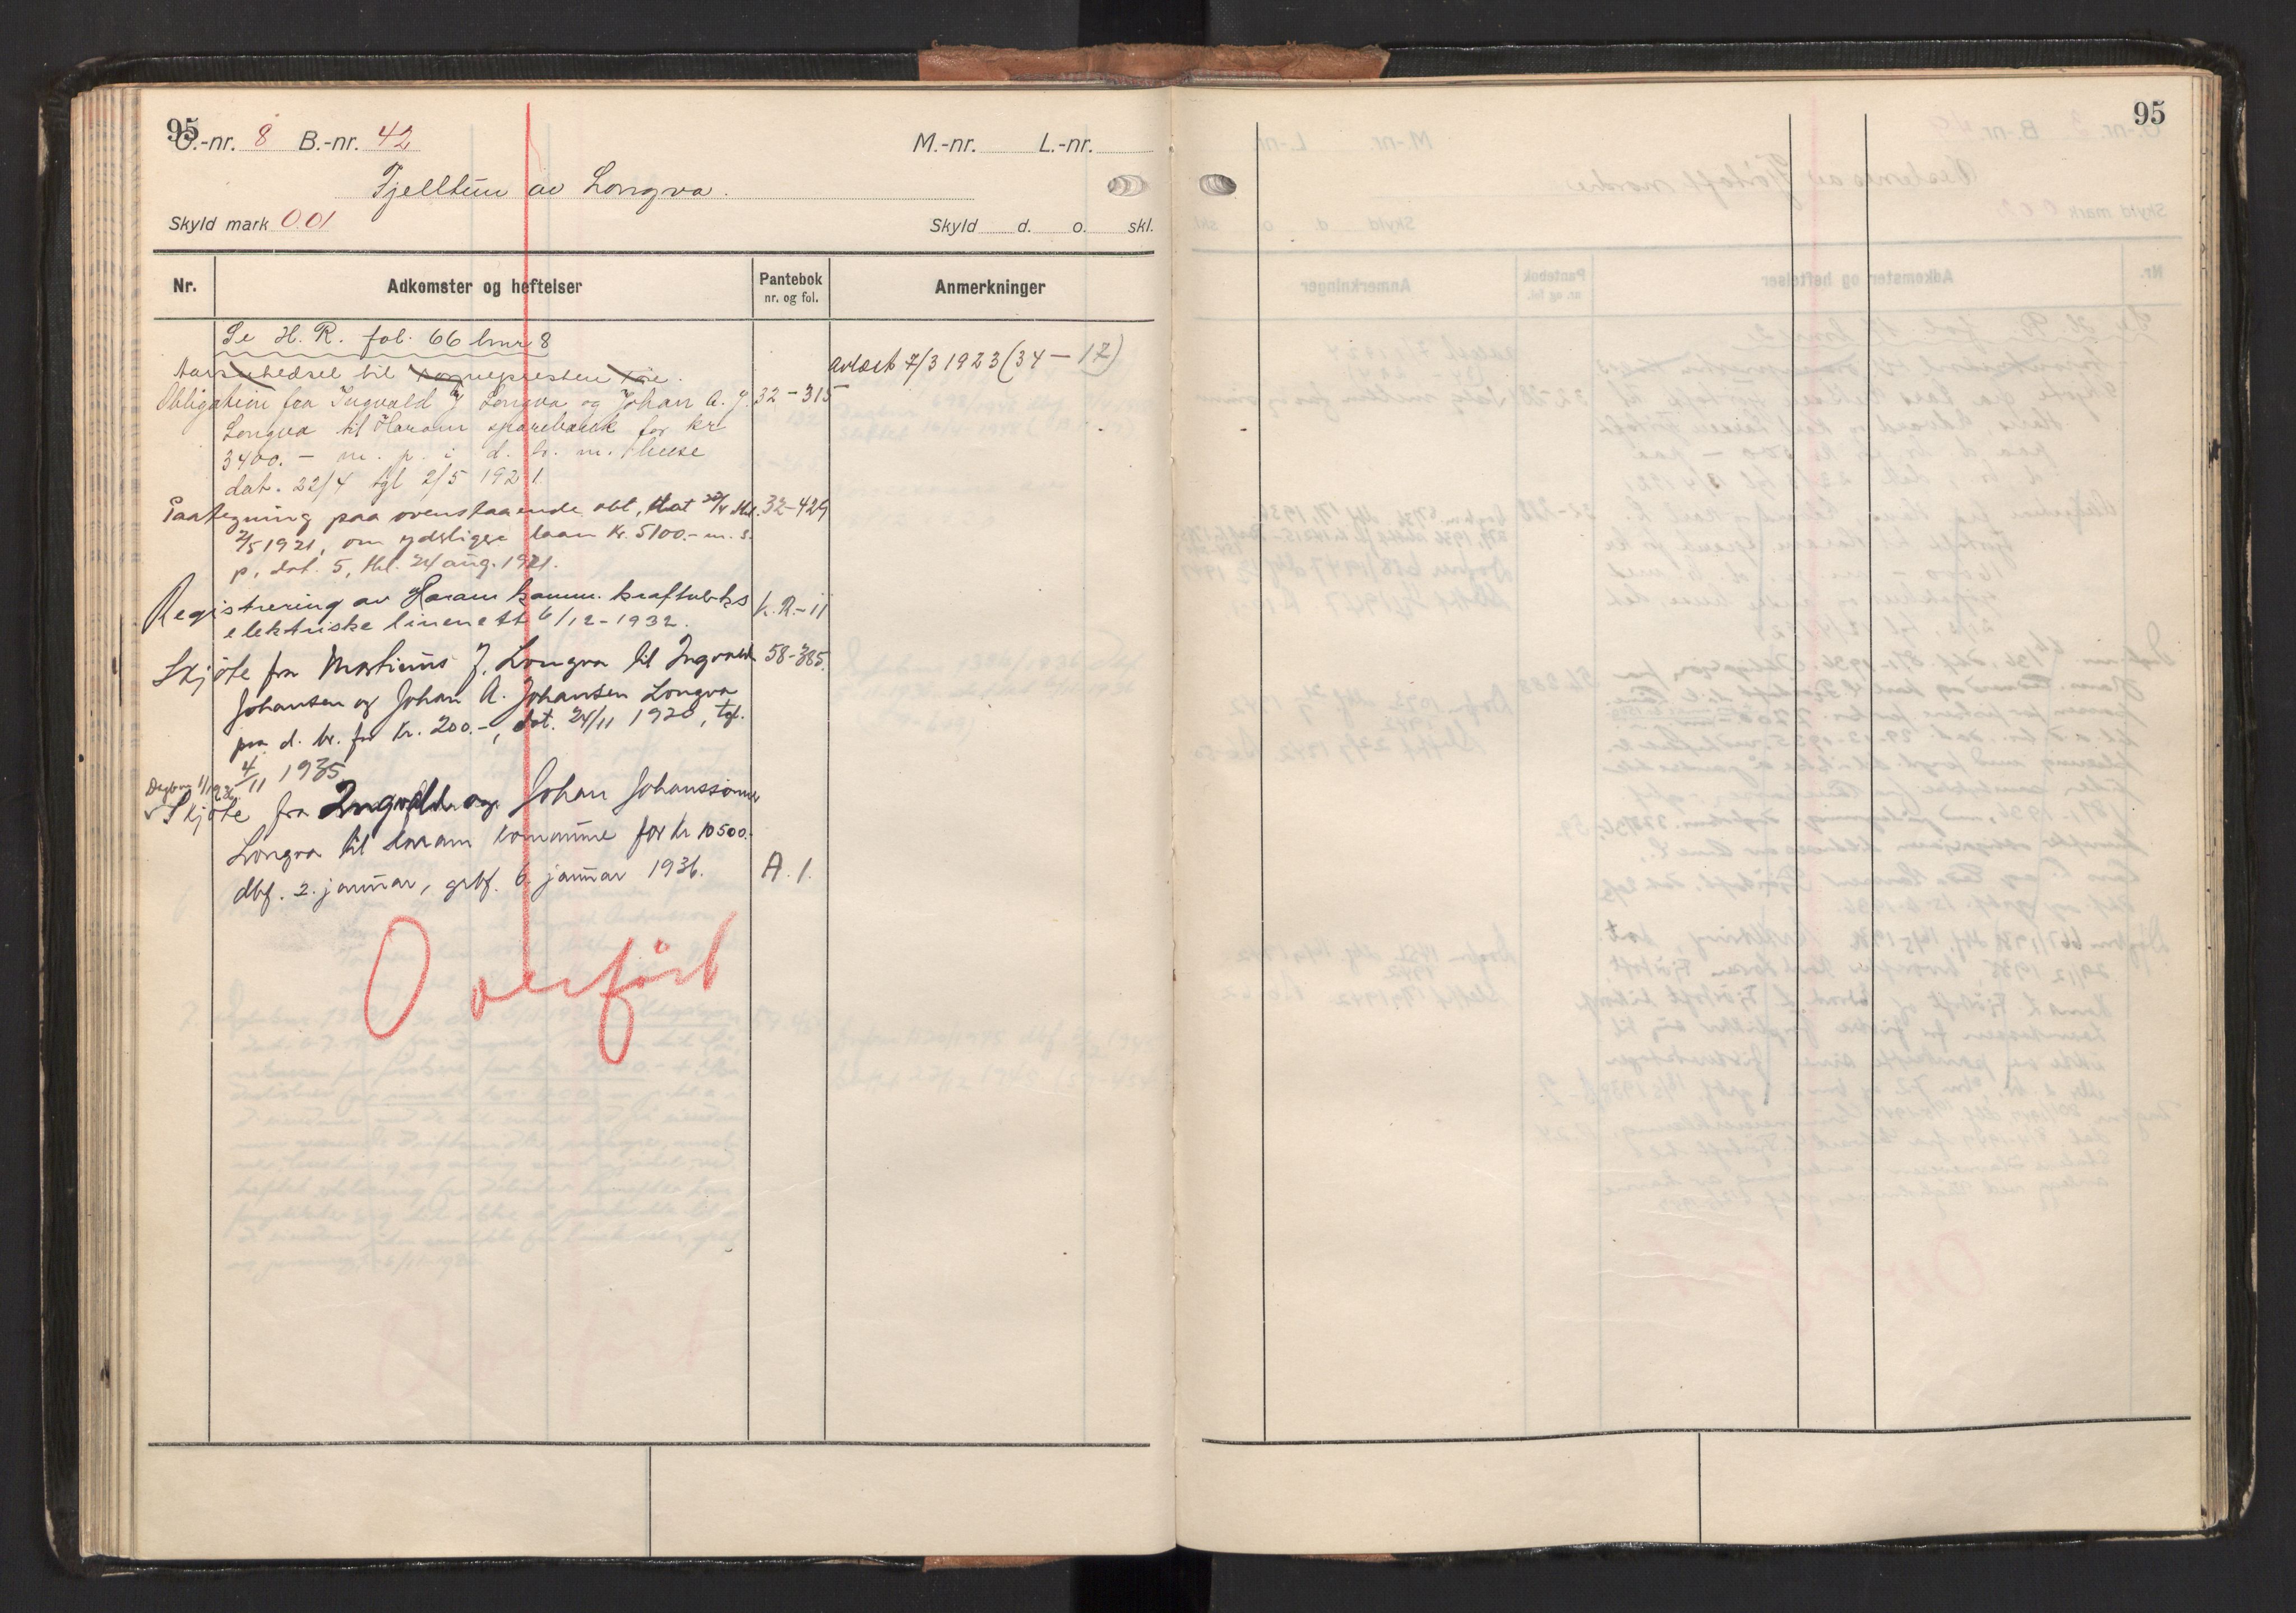 95
G.-nr. 8 B.-nr. 42 M.-nr. L.-nr.
Fjelltun av Longva.
Skyld mark 0.01 Skyld d. o. skl.
Nr. Adkomster og heftelser Pantebok nr. og fol. Anmerkninger
Se H. R. fol. 66 bnr 8
til
Obligation fra Ingvald J Longva og Johan A. J. 32-315 avlæst 7/3 1923 (34-17)
Longva til Haram sparebank for kr
3400.- m. p. i d. br. m. huse
dat. 22/4 tgl 2/5 1921.
Paategning paa ovenstaaende obl, dat 22/4 thl. 32-429
2/5 1921, om yderligere laan kr. 5100.- m. s.
p. dat. 5, thl. 24 aug. 1921.
Registrering av Haram komm. kraftverks K.R.-11
elektriske linenett 6/12-1932.
Skjöte fra Martinus J. Longva til Ingvald 58-385.
Johansen og Johan A. Johansen Longva
paa d. br. for kr. 200.-, dat. 24/11 1920, tgl.
4/11 1935
Dagbnr 11/1936.
Skjöte fra Ingvald og Johan Johanssönner
Longva til Haram kommune for kr 10500.-
dbf. 2. januar, grbf. 6. januar 1936. A.1.
Overført
95